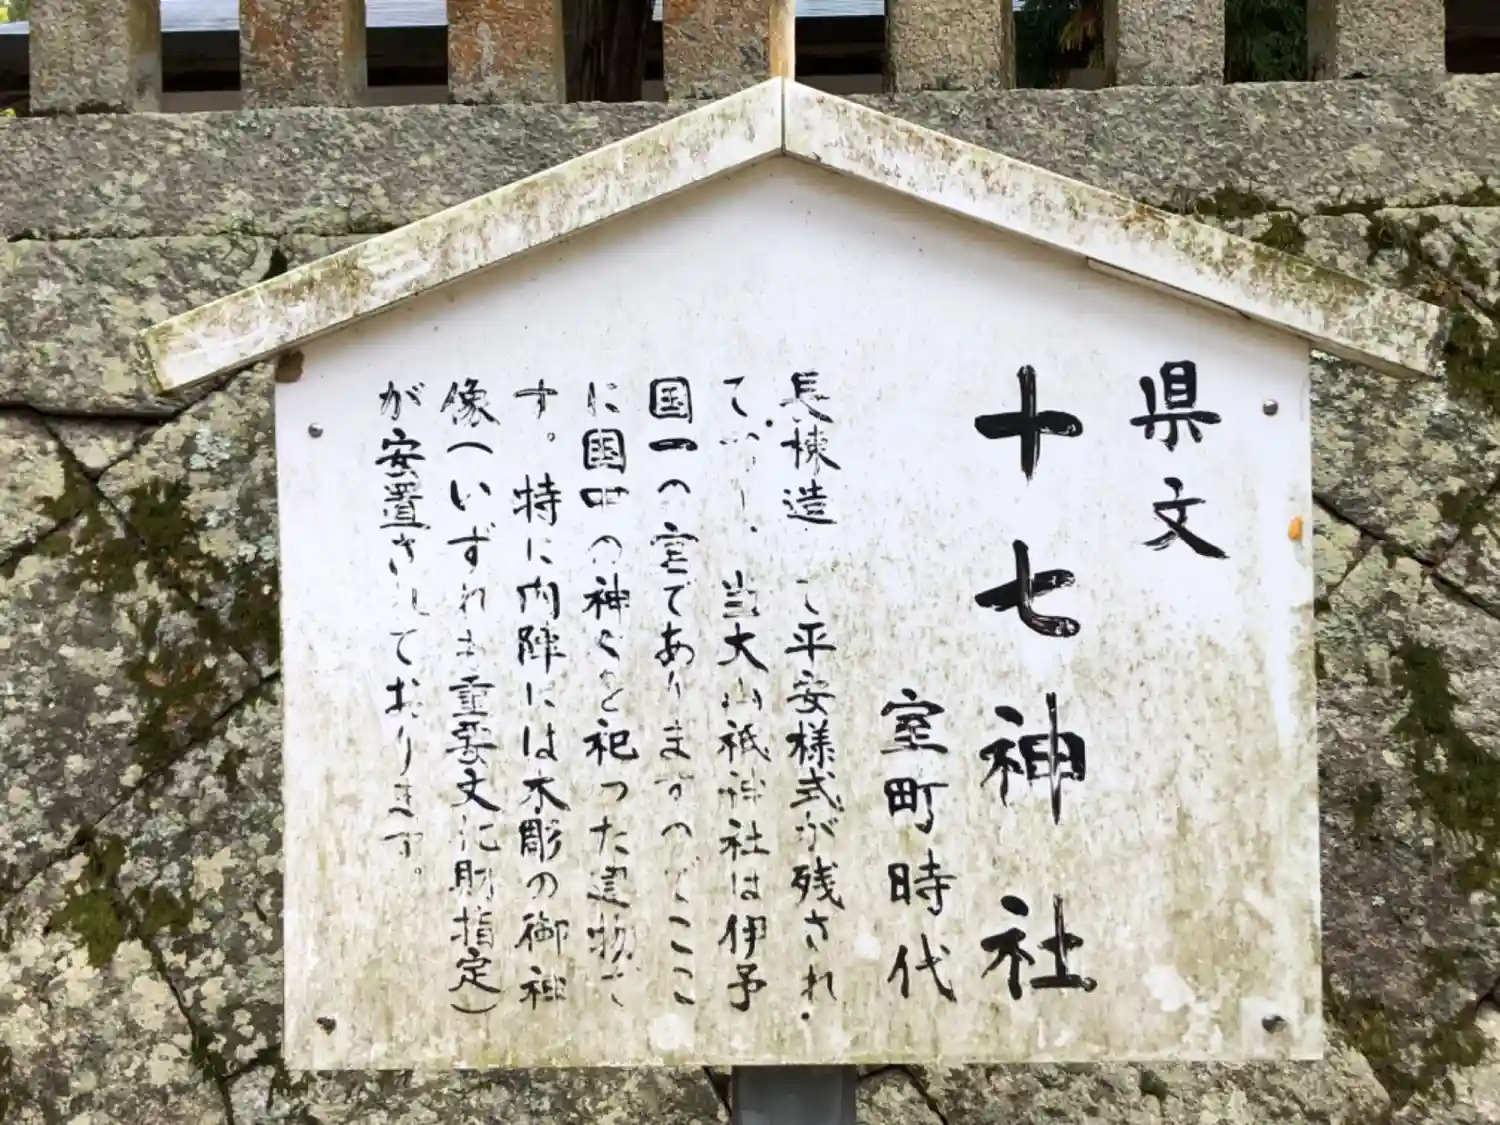 県文
十七神社
室町時代
長棟造 て平安様式が残され
て 当大山祇神社は伊予
国一の宮でありますのでここ
に国中の神々を祀った建物で
す。特に内陣には木彫の御神
像(いずれも重要文化財指定)
が安置されております。